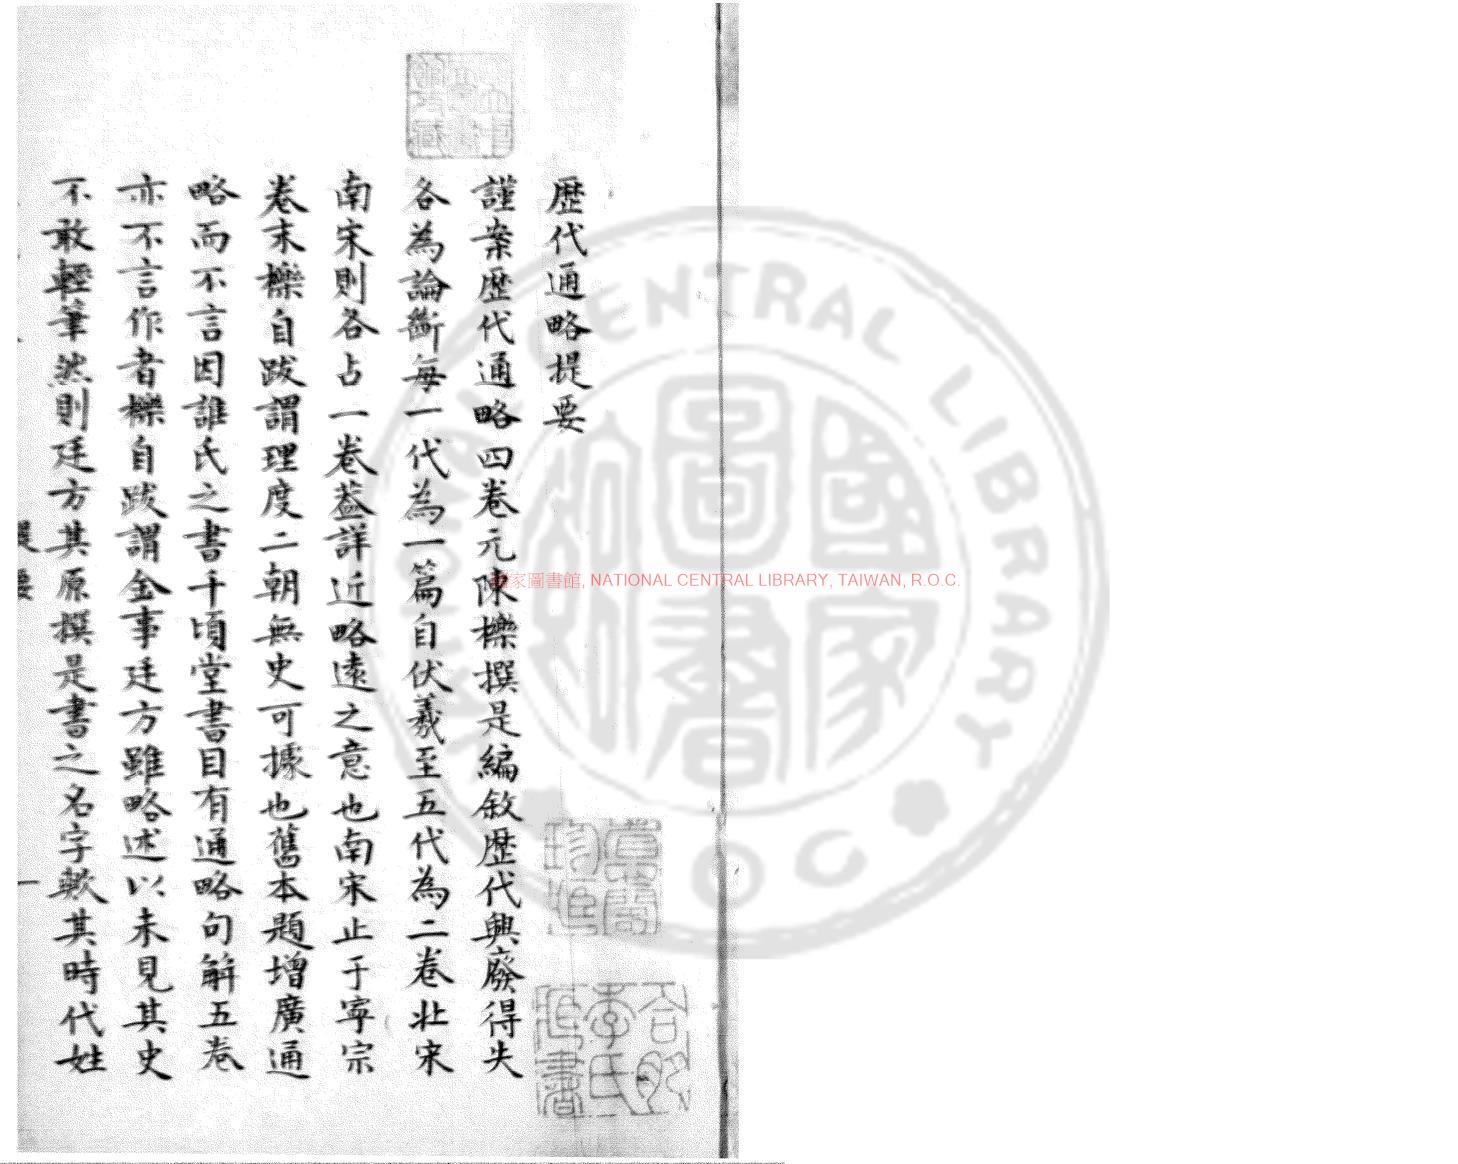 歷代通略提要
謹案歷代通略四卷元陳櫟撰是編敘歷代興廢得失
各為論斷每一代為一篇自伏羲至五代為二卷北宋
南宋則各占一卷葢詳近略遠之意也南宋止于寧宗
卷末櫟自跋謂理度二朝無史可據也舊本題增廣通
略而不言因誰氏之書千頃堂書目有通略句解五卷
亦不言作者櫟自跋謂金事廷方雖略述以未見其史
不敢輕筆然則廷方其原撰是書之名字歟其時代姓
提要 一
國家圖書館
NATIONAL CENTRAL LIBRARY
R.O.C.
國家圖書館, NATIONAL CENTRAL LIBRARY, TAIWAN, R.O.C.
合肥
李氏
藏書